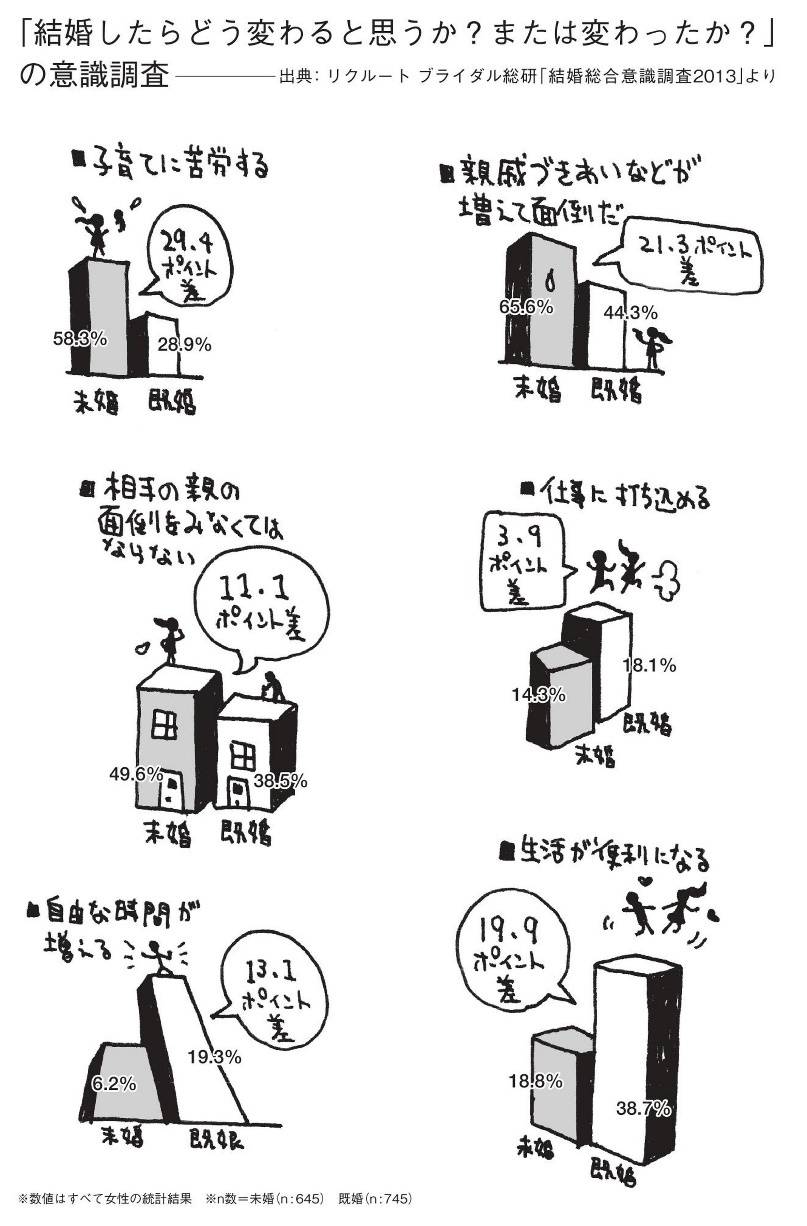 「結婚したらどう変わると思うか？または変わったか？」
の意識調査 ──── 出典：リクルート ブライダル総研「結婚総合意識調査2013」より
■子育てに苦労する
29.4
ポイント
差
58.3%
28.9%
未婚 既婚
■親戚づきあいなどが
増えて面倒だ
21.3ポイント
差
65.6%
44.3%
未婚 既婚
■相手の親の
面倒をみなくては
ならない
11.1
ポイント差
49.6%
38.5%
未婚 既婚
■仕事に打ち込める
3.9
ポイント
差
14.3%
18.1%
未婚
既婚
■自由な時間が
増える
13.1
ポイント
差
6.2%
19.3%
未婚 既婚
■生活が便利になる
19.9
ポイント
差
18.8%
38.7%
未婚
既婚
※数値はすべて女性の統計結果 ※n数＝未婚（n：645） 既婚（n：745）